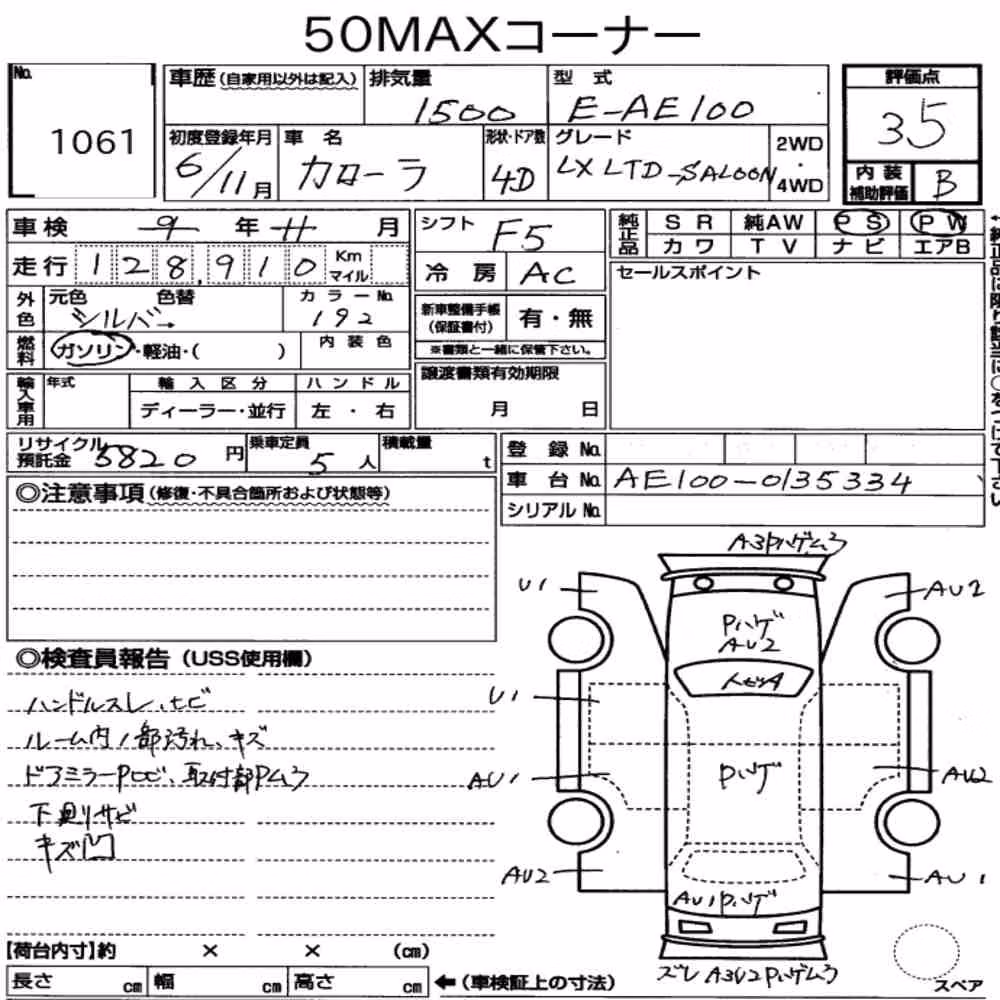 50MAXコーナー
No.
1061
車歴（自家用以外は記入）
排気量
1500
型 式
E-AE100
評価点
35
初度登録年月
6/11月
車 名
カローラ
形状・ドア数
4D
グレード
LX LTD-SALOON
2WD
・
4WD
内装
補助評価
B
車検 9年11月
シフト F5
純正品
SR 純AW PS PW
カワ TV ナビ エアB
走行 128,910 Km
マイル
冷房 AC
セールスポイント
外色
元色 色替
シルバー
カラーNo.
192
新車整備手帳
（保証書付）
有・無
燃料
ガソリン・軽油・( )
内装色
※書類と一緒に保管下さい。
輸入車用
年式
輸入区分
ハンドル
ディーラー・並行
左・右
譲渡書類有効期限
月 日
リサイクル
預託金 5820円
乗車定員
5人
積載量
t
登録No.
車台No. AE100-0135334
シリアルNo.
◎注意事項（修復・不具合箇所および状態等）
A3Pハゲムラ
U1
AU2
Pハゲ
AU2
◎検査員報告（USS使用欄）
ハンドルスレ、ヒビ
U1
ルーム内1部汚れ、キズ
ドアミラーPヒビ、取付部Pムラ
AU1
Pハゲ
AU2
下廻りサビ
キズ凹
AU2
AU1
AU1Pハゲ
【荷台内寸】約 × × (cm)
ズレ A3U2Pハゲムラ
長さ cm 幅 cm 高さ cm
←（車検証上の寸法）
スペア